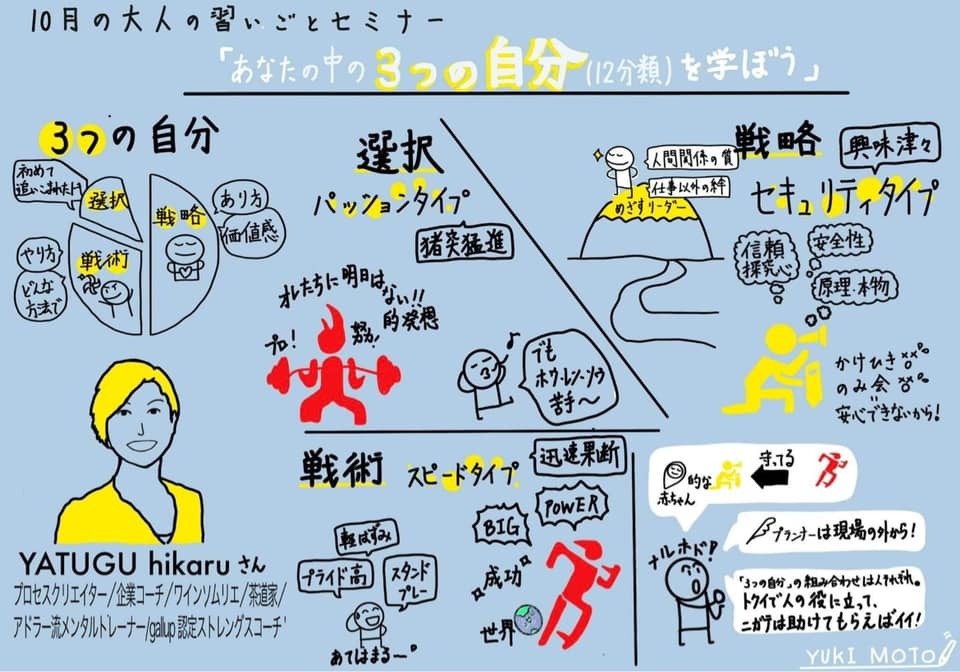 10月の大人の習いごとセミナー
「あなたの中の3つの自分(12分類)を学ぼう」
3つの自分
初めて
追いこまれたﾄｷ
選択
戦略
あり方
価値感
やり方
どんな
方法で
戦術
選択
パッションタイプ
猪突猛進
オレたちに明日は
ない!!
的発想
プロ!
努力!
でも
ホウ・レン・ソウ
苦手〜
戦略
興味津々
セキュリティタイプ
人間関係の質
仕事以外の絆
めざすリーダー
信頼
探究心
安全性
原理・本物
かけひき
のみ会
安心できないから!
YATUGU hikaruさん
プロセスクリエイター/企業コーチ/ワインソムリエ/茶道家/
アドラー流メンタルトレーナー/gallup認定ストレングスコーチ
戦術
スピードタイプ
迅速果断
軽はずみ
プライド高
スタンド
プレー
あてはまるー。
BIG
POWER
成功
世界
赤ちゃん
的な
守ってる
プランナーは現場の外から!
ナルホド!
「3つの自分」の組み合わせは人それぞれ。
トクイで人の役に立って、
ニガテは助けてもらえばイイ!
YUKI MOTO